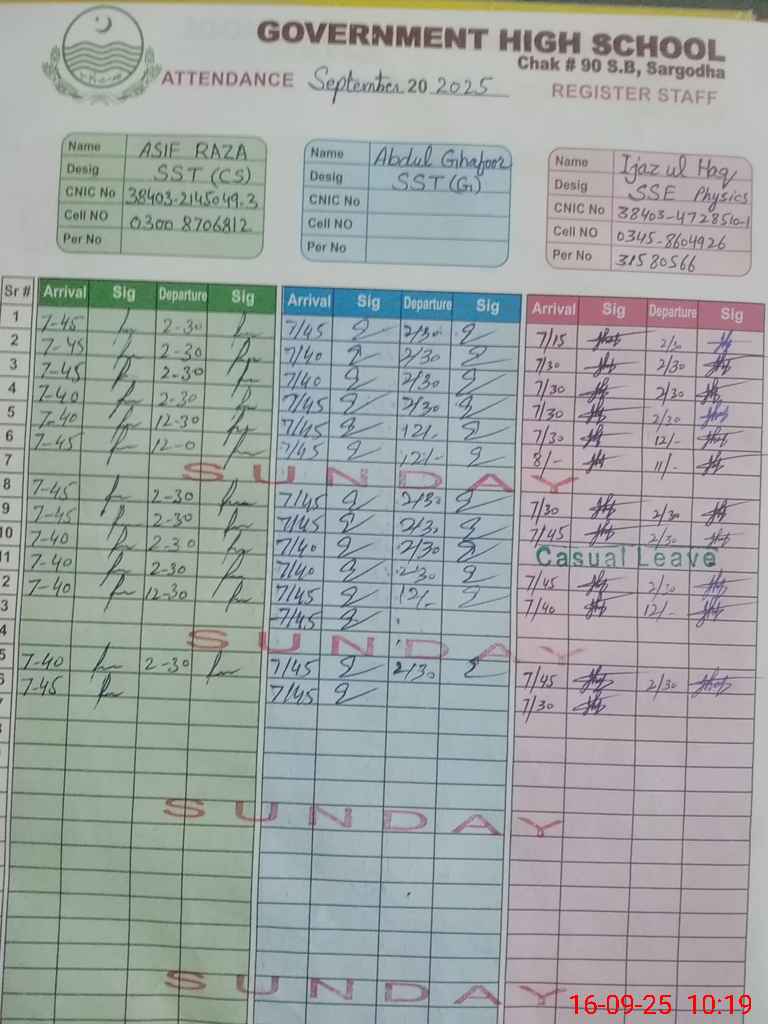 GOVERNMENT HIGH SCHOOL
Chak # 90 S.B, Sargodha
ATTENDANCE September 20 2025 REGISTER STAFF
Name ASIF RAZA
Desig SST (CS)
CNIC No 38403-2145049-3
Cell NO 0300 8706812
Per No
Name Abdul Ghafoor
Desig SST (G)
CNIC No
Cell NO
Per No
Name Ijaz ul Haq
Desig SSE Physics
CNIC No 38403-4728510-1
Cell NO 0345-8604926
Per No 31580566
Sr # Arrival Sig Departure Sig Arrival Sig Departure Sig Arrival Sig Departure Sig
1 7-45 2-30 7/45 2/30 7/15 2/30
2 7-45 2-30 7/40 2/30 7/30 2/30
3 7-45 2-30 7/40 2/30 7/30 2/30
4 7-40 2-30 7/45 2/30 7/30 2/30
5 7-40 12-30 7/45 12/- 7/30 12/-
6 7-45 12-0 7/45 12/- 8/- 11/-
7 SUNDAY
8 7-45 2-30 7/45 2/30 7/30 2/30
9 7-45 2-30 7/45 2/30 7/45 2/30
10 7-40 2-30 7/40 2/30 Casual Leave
11 7-40 2-30 7/40 2/30 7/45 2/30
2 7-40 12-30 7/45 12/- 7/40 12/-
3 7/45
4 SUNDAY
5 7-40 2-30 7/45 2/30 7/45 2/30
6 7-45 7/45 7/30
SUNDAY
SUNDAY
16-09-25 10:19